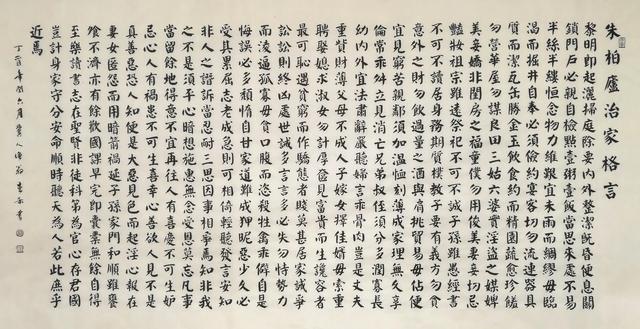 朱柏廬治家格言
黎明即起灑掃庭除要內外整潔既昏便息關
鎖門戶必親自檢點壹粥壹飯當思來處不易
半絲半縷恒念物力維艱宜未雨而綢繆毋臨
渴而掘井自奉必須儉約宴客切勿流連器具
質而潔瓦缶勝金玉飲食約而精園蔬愈珍饈
勿營華屋勿謀良田三姑六婆實淫盜之媒婢
美妾嬌非閨房之福童僕勿用俊美妻妾切忌
豔妝祖宗雖遠祭祀不可不誠子孫雖愚經書
不可不讀居身務期質樸教子要有義方勿貪
意外之財勿飲過量之酒與肩挑貿易毋佔便
宜見窮苦親鄰須加溫恤刻薄成家理無久享
倫常乖舛立見消亡兄弟叔侄須分多潤寡長
幼內外宜法肅辭嚴聽婦言乖骨肉豈是丈夫
重貲財薄父母不成人子嫁女擇佳婿毋索重
聘娶媳求淑女勿計厚奩見富貴而生諂容者
最可恥遇貧窮而作驕態者賤莫甚居家誡爭
訟訟則終凶處世誡多言言多必失勿恃勢力
而凌逼孤寡毋貪口腹而恣殺牲禽乖僻自是
悔誤必多頹惰自甘家道難成狎昵惡少久必
受其累屈志老成急則可相倚輕聽發言安知
非人之譖訴當忍耐三思因事相爭焉知非我
之不是須平心暗想施惠無念受恩莫忘凡事
當留餘地得意不宜再往人有喜慶不可生妒
忌心人有禍患不可生喜幸心善欲人見不是
真善惡恐人知便是大惡見色而起淫心報在
妻女匿怨而用暗箭禍延子孫家門和順雖饔
飧不濟亦有餘歡國課早完即囊橐無餘自得
至樂讀書志在聖賢非徒科第為官心存君國
豈計身家守分安命順時聽天為人若此庶乎
近焉
丁酉年閏六月